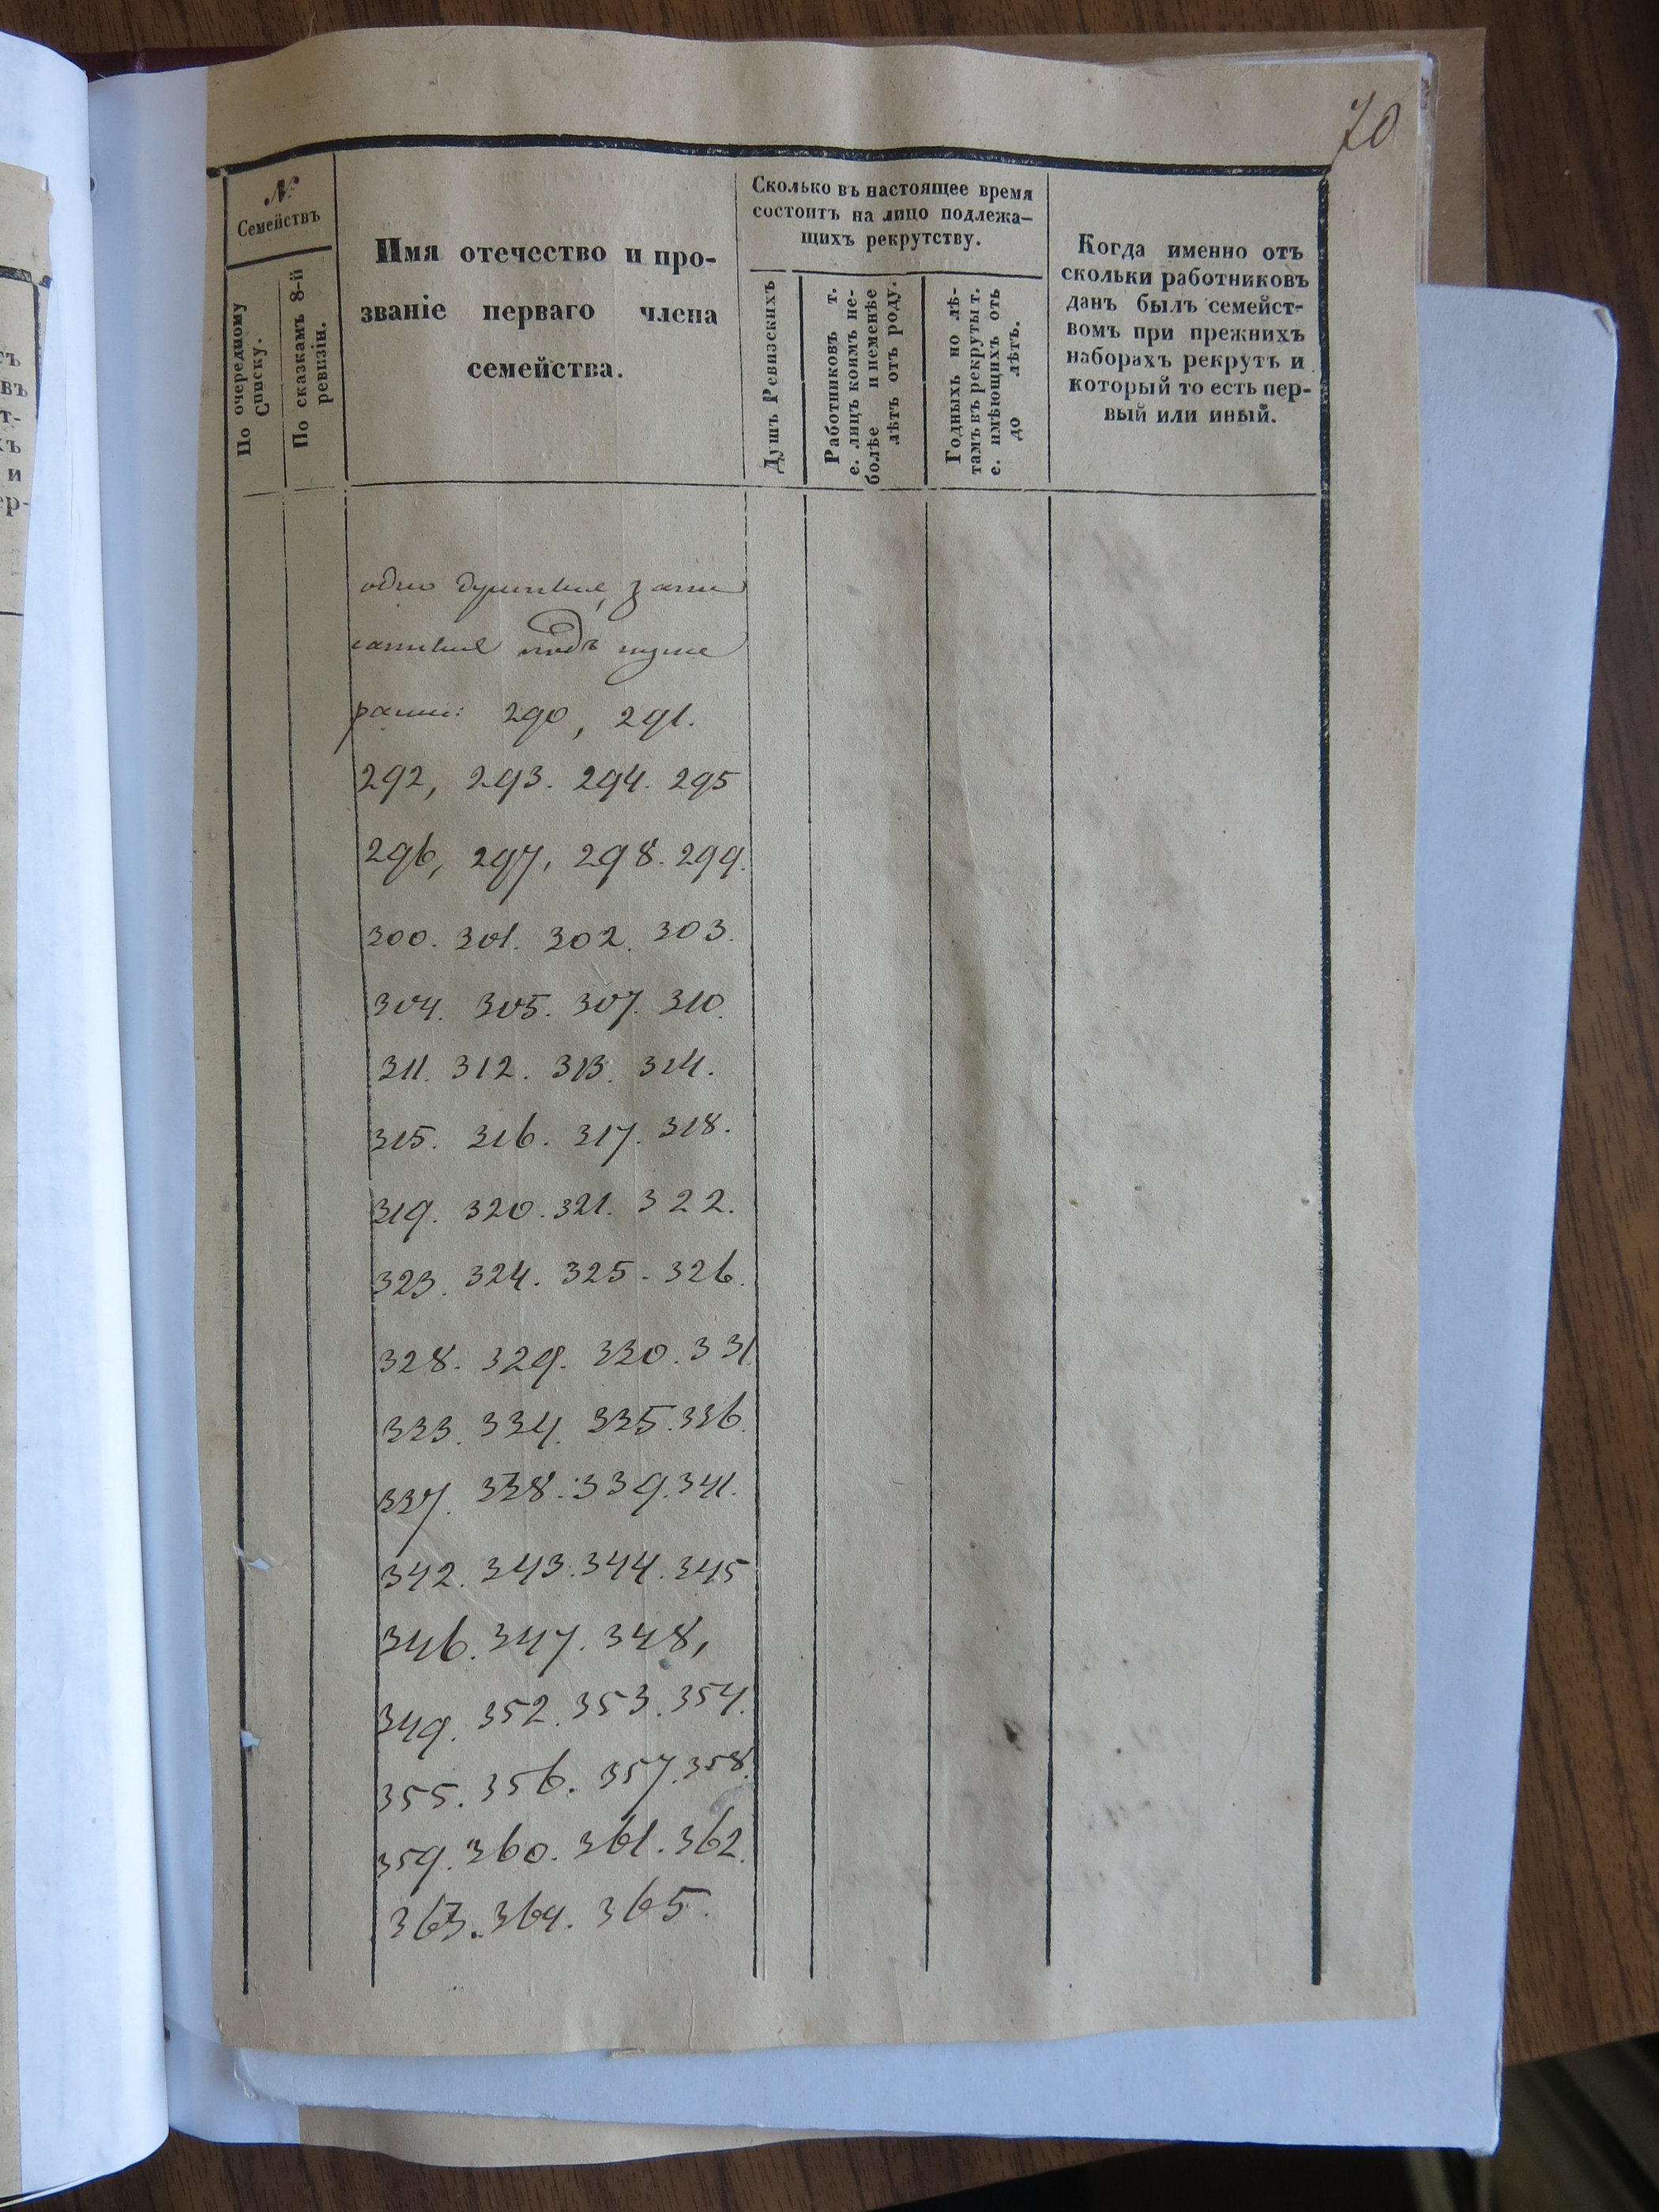 70
№
Семействъ
По очередному
Списку.
По сказкамъ 8-й
ревизіи.
Имя отечество и про-
званіе перваго члена
семейства.
Сколько въ настоящее время
состоитъ на лицо подлежа-
щихъ рекрутству.
Душъ Ревизскихъ
Работниковъ т.
е. лицъ коимъ не-
болѣе и неменѣе
лѣтъ отъ роду.
Годныхъ по лѣ-
тамъ въ рекруты т.
е. имѣющихъ отъ
до лѣтъ.
Когда именно отъ
скольки работниковъ
данъ былъ семейст-
вомъ при прежнихъ
наборахъ рекрутъ и
который то есть пер-
вый или иный.
одно душные, запи
санные подъ нуме
рами: 290, 291.
292, 293. 294. 295
296, 297, 298. 299.
300. 301. 302. 303.
304. 305. 307. 310.
311. 312. 313. 314.
315. 316. 317. 318.
319. 320. 321. 322.
323. 324. 325. 326.
328. 329. 330. 331.
333. 334. 335. 336.
337. 338. 339. 341.
342. 343. 344. 345
346. 347. 348,
349. 352. 353. 354.
355. 356. 357. 358.
359. 360. 361. 362.
363. 364. 365.